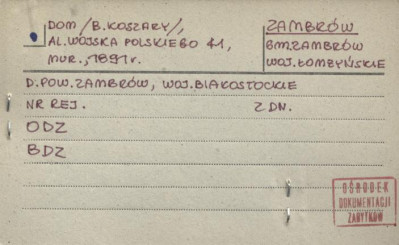 DOM /B. KOSZARY/,
AL. WOJSKA POLSKIEGO 41,
MUR., 1891 r.
ZAMBRÓW
GM. ZAMBRÓW
WOJ. ŁOMŻYŃSKIE
D. POW. ZAMBRÓW, WOJ. BIAŁOSTOCKIE
NR REJ. Z DN.
ODZ
BDZ
OŚRODEK
DOKUMENTACJI
ZABYTKÓW